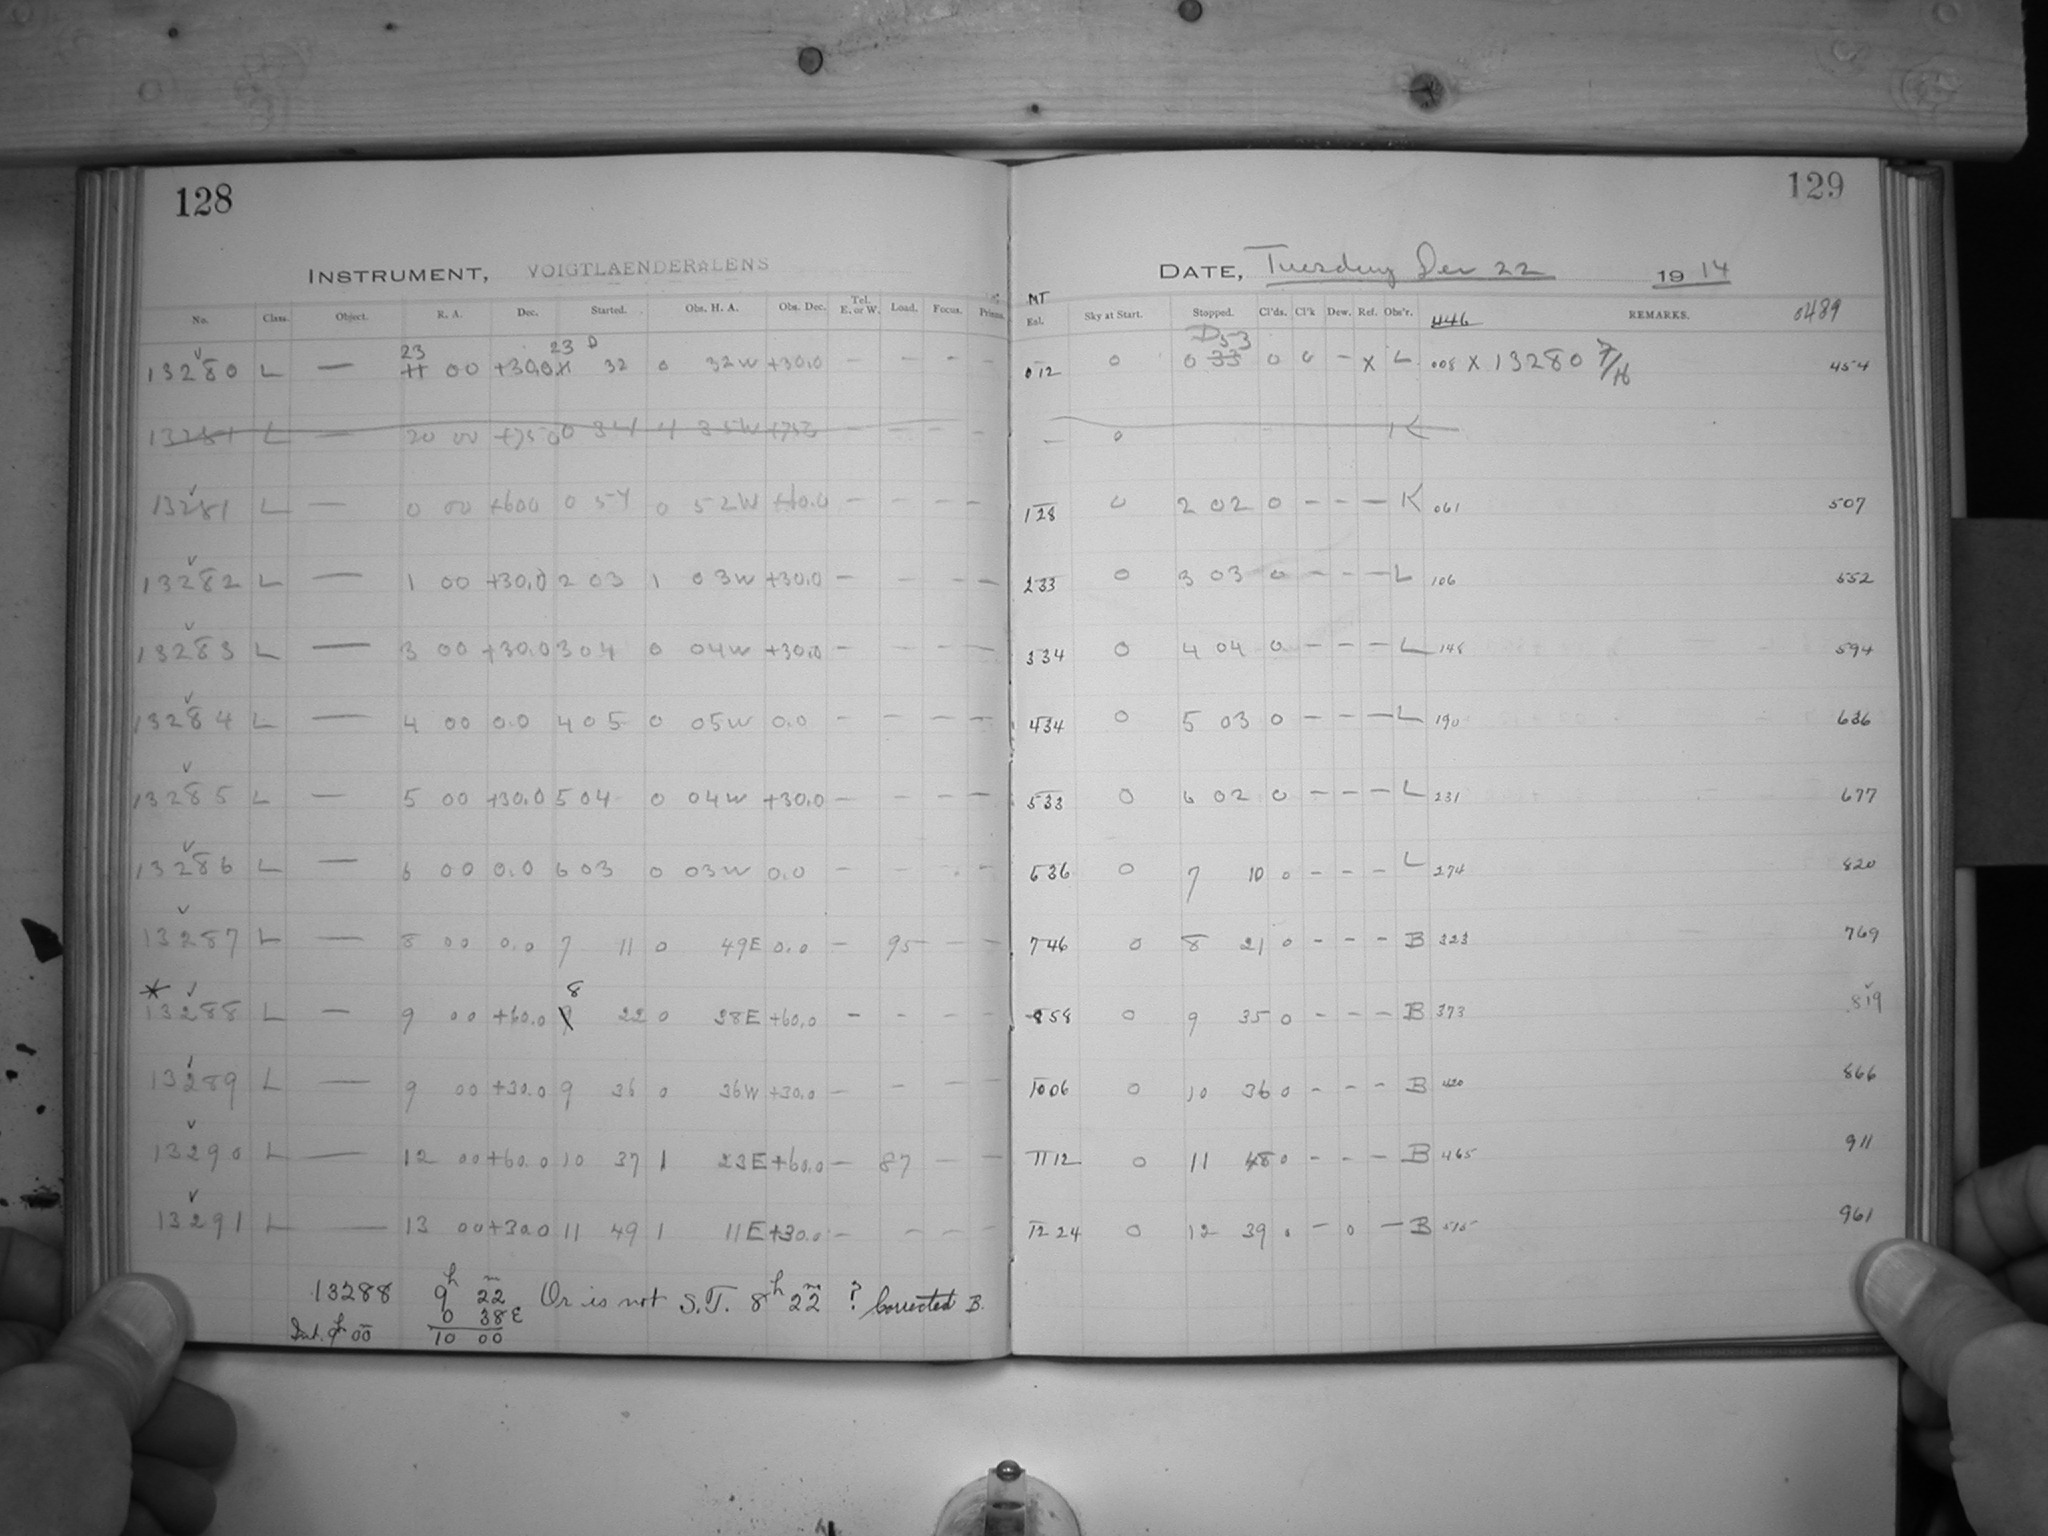 128
129
INSTRUMENT, VOIGTLAENDER LENS
DATE, Tuesday Dec 22 1914
MT
No. Class. Object. R. A. Dec. Started. Obs. H. A. Obs. Dec. Tel. E. or W. Load. Focus. Prisms.
Sky at Start. Stopped. Cl'ds. Cl'k Dew. Ref. Obs'r. 446 REMARKS. 0489
13280 L — 23 00 +30.0 23 32 0 32W +30.0 — — — — 012 0 0 53 0 0 — X L 008 X 13280 7/16 454
13281 L — 20 00 +75.0 0 34 4 35W +75.0 — — — — — 0 K
13281 L — 0 00 +60.0 0 54 0 52W +60.0 — — — — 128 0 2 02 0 — — — K 061 507
13282 L — 1 00 +30.0 2 03 1 03W +30.0 — — — — 233 0 3 03 0 — — — L 106 552
13283 L — 3 00 +30.0 3 04 0 04W +30.0 — — — — 334 0 4 04 0 — — — L 148 594
13284 L — 4 00 0.0 4 05 0 05W 0.0 — — — — 434 0 5 03 0 — — — L 190 636
13285 L — 5 00 +30.0 5 04 0 04W +30.0 — — — — 533 0 6 02 0 — — — L 231 677
13286 L — 6 00 0.0 6 03 0 03W 0.0 — — — — 636 0 7 10 0 — — — L 274 820
13287 L — 8 00 0.0 7 11 0 49E 0.0 — 95 — — 746 0 8 21 0 — — — B 323 769
* 13288 L — 9 00 +60.0 8 22 0 38E +60.0 — — — — 858 0 9 35 0 — — — B 373 819
13289 L — 9 00 +30.0 9 36 0 36W +30.0 — — — — 1006 0 10 36 0 — — — B 420 866
13290 L — 12 00 +60.0 10 37 1 23E +60.0 — 87 — — 1112 0 11 48 0 — — — B 465 911
13291 L — 13 00 +30.0 11 49 1 11E +30.0 — — — — 1224 0 12 39 0 — 0 — B 515 961
13288 9h 22m Or is not S.T. 8h 22m ? Corrected B.
0 38E
9h 00m 10 00